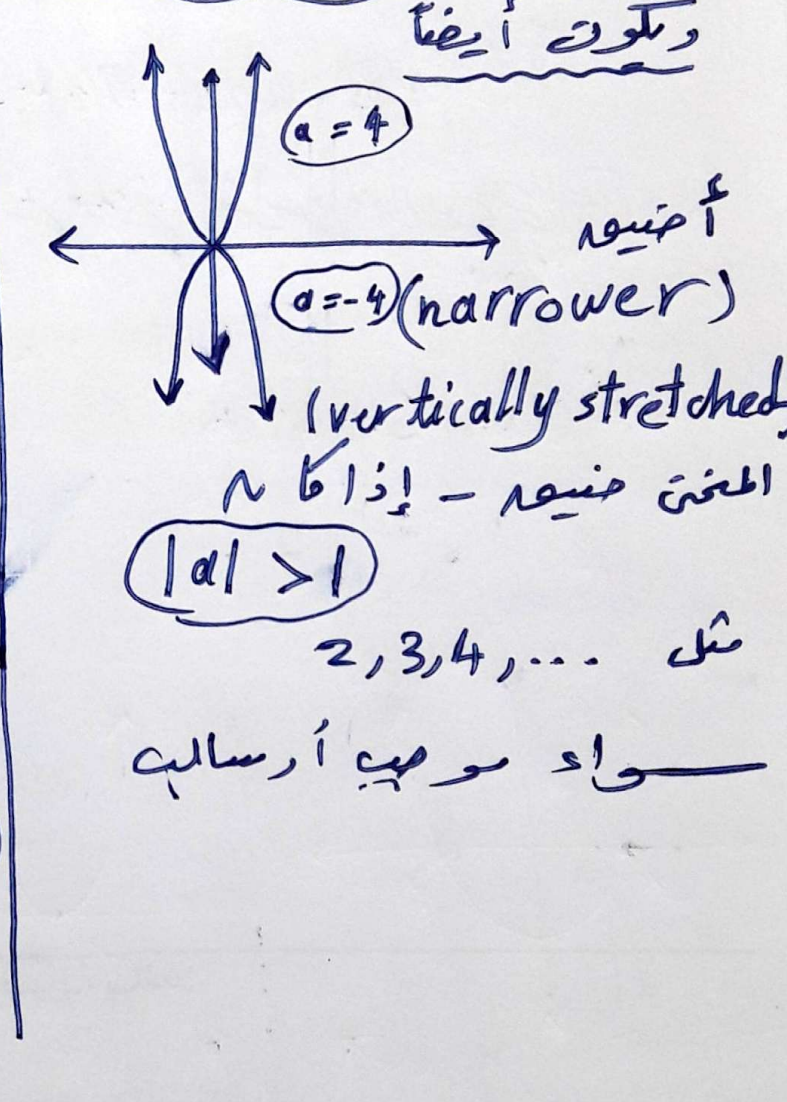 ويكون أيضاً
a = 4
أضيق
a = -4 (narrower)
(vertically stretched
المنحنى ضيق - إذا كان
|a| > 1
مثل 2, 3, 4, ...
سواء موجب أو سالب